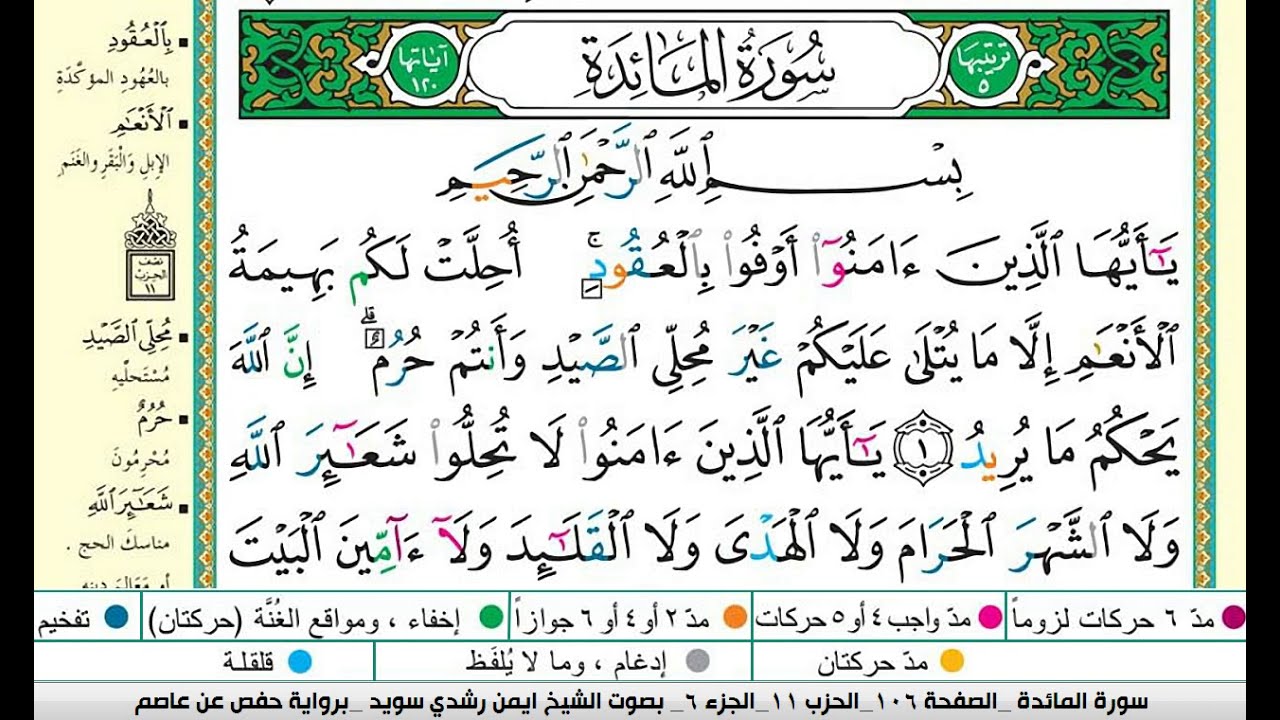 ترتيبها ٥
سُورَةُ المَائِدَةِ
آياتها ١٢٠
بِسْمِ ٱللَّهِ ٱلرَّحْمَٰنِ ٱلرَّحِيمِ
يَٰٓأَيُّهَا ٱلَّذِينَ ءَامَنُوٓا۟ أَوْفُوا۟ بِٱلْعُقُودِ ۚ أُحِلَّتْ لَكُم بَهِيمَةُ
ٱلْأَنْعَٰمِ إِلَّا مَا يُتْلَىٰ عَلَيْكُمْ غَيْرَ مُحِلِّى ٱلصَّيْدِ وَأَنتُمْ حُرُمٌ ۗ إِنَّ ٱللَّهَ
يَحْكُمُ مَا يُرِيدُ ١ يَٰٓأَيُّهَا ٱلَّذِينَ ءَامَنُوا۟ لَا تُحِلُّوا۟ شَعَٰٓئِرَ ٱللَّهِ
وَلَا ٱلشَّهْرَ ٱلْحَرَامَ وَلَا ٱلْهَدْىَ وَلَا ٱلْقَلَٰٓئِدَ وَلَآ ءَآمِّينَ ٱلْبَيْتَ
بِٱلْعُقُودِ
بالعُهُودِ المؤكَّدَةِ
ٱلْأَنْعَٰمِ
الإبلِ وَالْبَقَرِ والغَنَمِ
نصف
الحزب
١١
مُحِلِّى ٱلصَّيْدِ
مُسْتَحلِّيهِ
حُرُمٌ
مُحْرِمُونَ
شَعَٰٓئِرَ ٱللَّهِ
مناسكَ الحج .
أو مَعَالِمَ دينِهِ
مدّ ٦ حركات لزوماً
مدّ واجب ٤ أو ٥ حركات
مدّ ٢ أو ٤ أو ٦ جوازاً
إخفاء ، ومواقع الغُنَّة (حركتان)
تفخيم
مدّ حركتان
إدغام ، وما لا يُلفَظ
قلقلة
سورة المائدة _الصفحة ١٠٦_الحزب ١١_الجزء ٦_ بصوت الشيخ ايمن رشدي سويد _برواية حفص عن عاصم